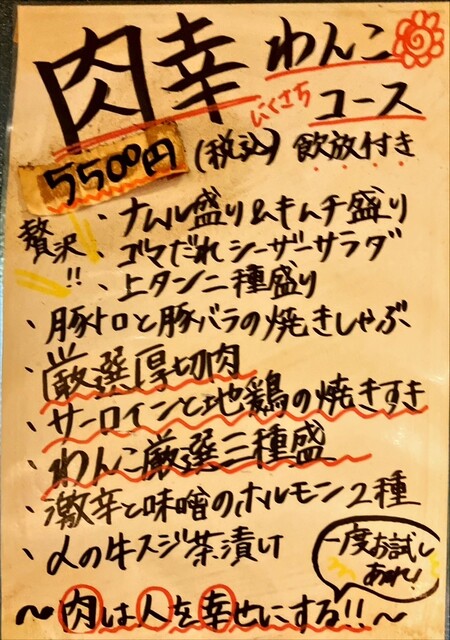 肉幸 わんこ
にくさち コース
5500円 (税込) 飲放付き
贅沢!!
・ナムル盛り&キムチ盛り
・ゴマだれシーザーサラダ
・上タン二種盛り
・豚トロと豚バラの焼きしゃぶ
・厳選厚切肉
・サーロインと地鶏の焼きすき
・わんこ厳選三種盛
・激辛と味噌のホルモン2種
・〆の牛スジ茶漬け
一度お試し
あれ!
〜肉は人を幸せにする!!〜